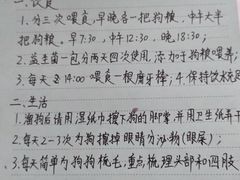 一、饮食
1. 分三次喂食,早晚各一把狗粮,中午大半
把狗粮。早7:30,中午12:30,晚18:30;
2. 益生菌一包分两天四次使用,添加于狗粮喂养;
3. 每天近14:00 喂食一根磨牙棒; 4. 保持饮水充足
二、生活
1. 遛狗后请用湿纸巾擦下狗的脚掌 并用卫生纸弄干
2. 每天2~3次为狗擦掉眼睛分泌物(眼屎);
3. 每天简单为狗狗梳毛,重点梳理头部和四肢